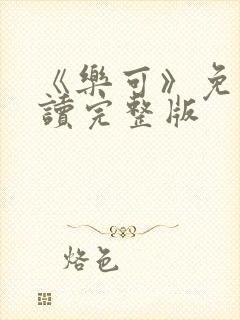 《樂可》免
讀完整版
烙色